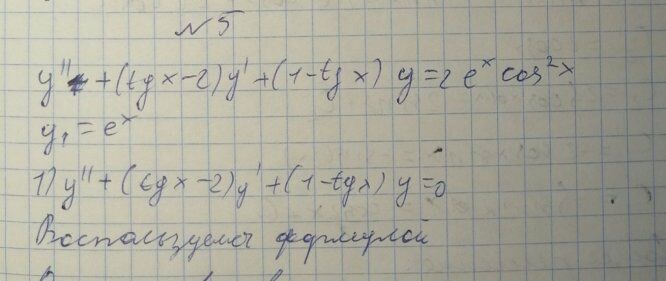 №5
y'' + (tg x - 2) y' + (1 - tg x) y = 2 e^x cos^2 x
y₁ = e^x
1) y'' + (tg x - 2) y' + (1 - tg x) y = 0
Воспользуемся формулой